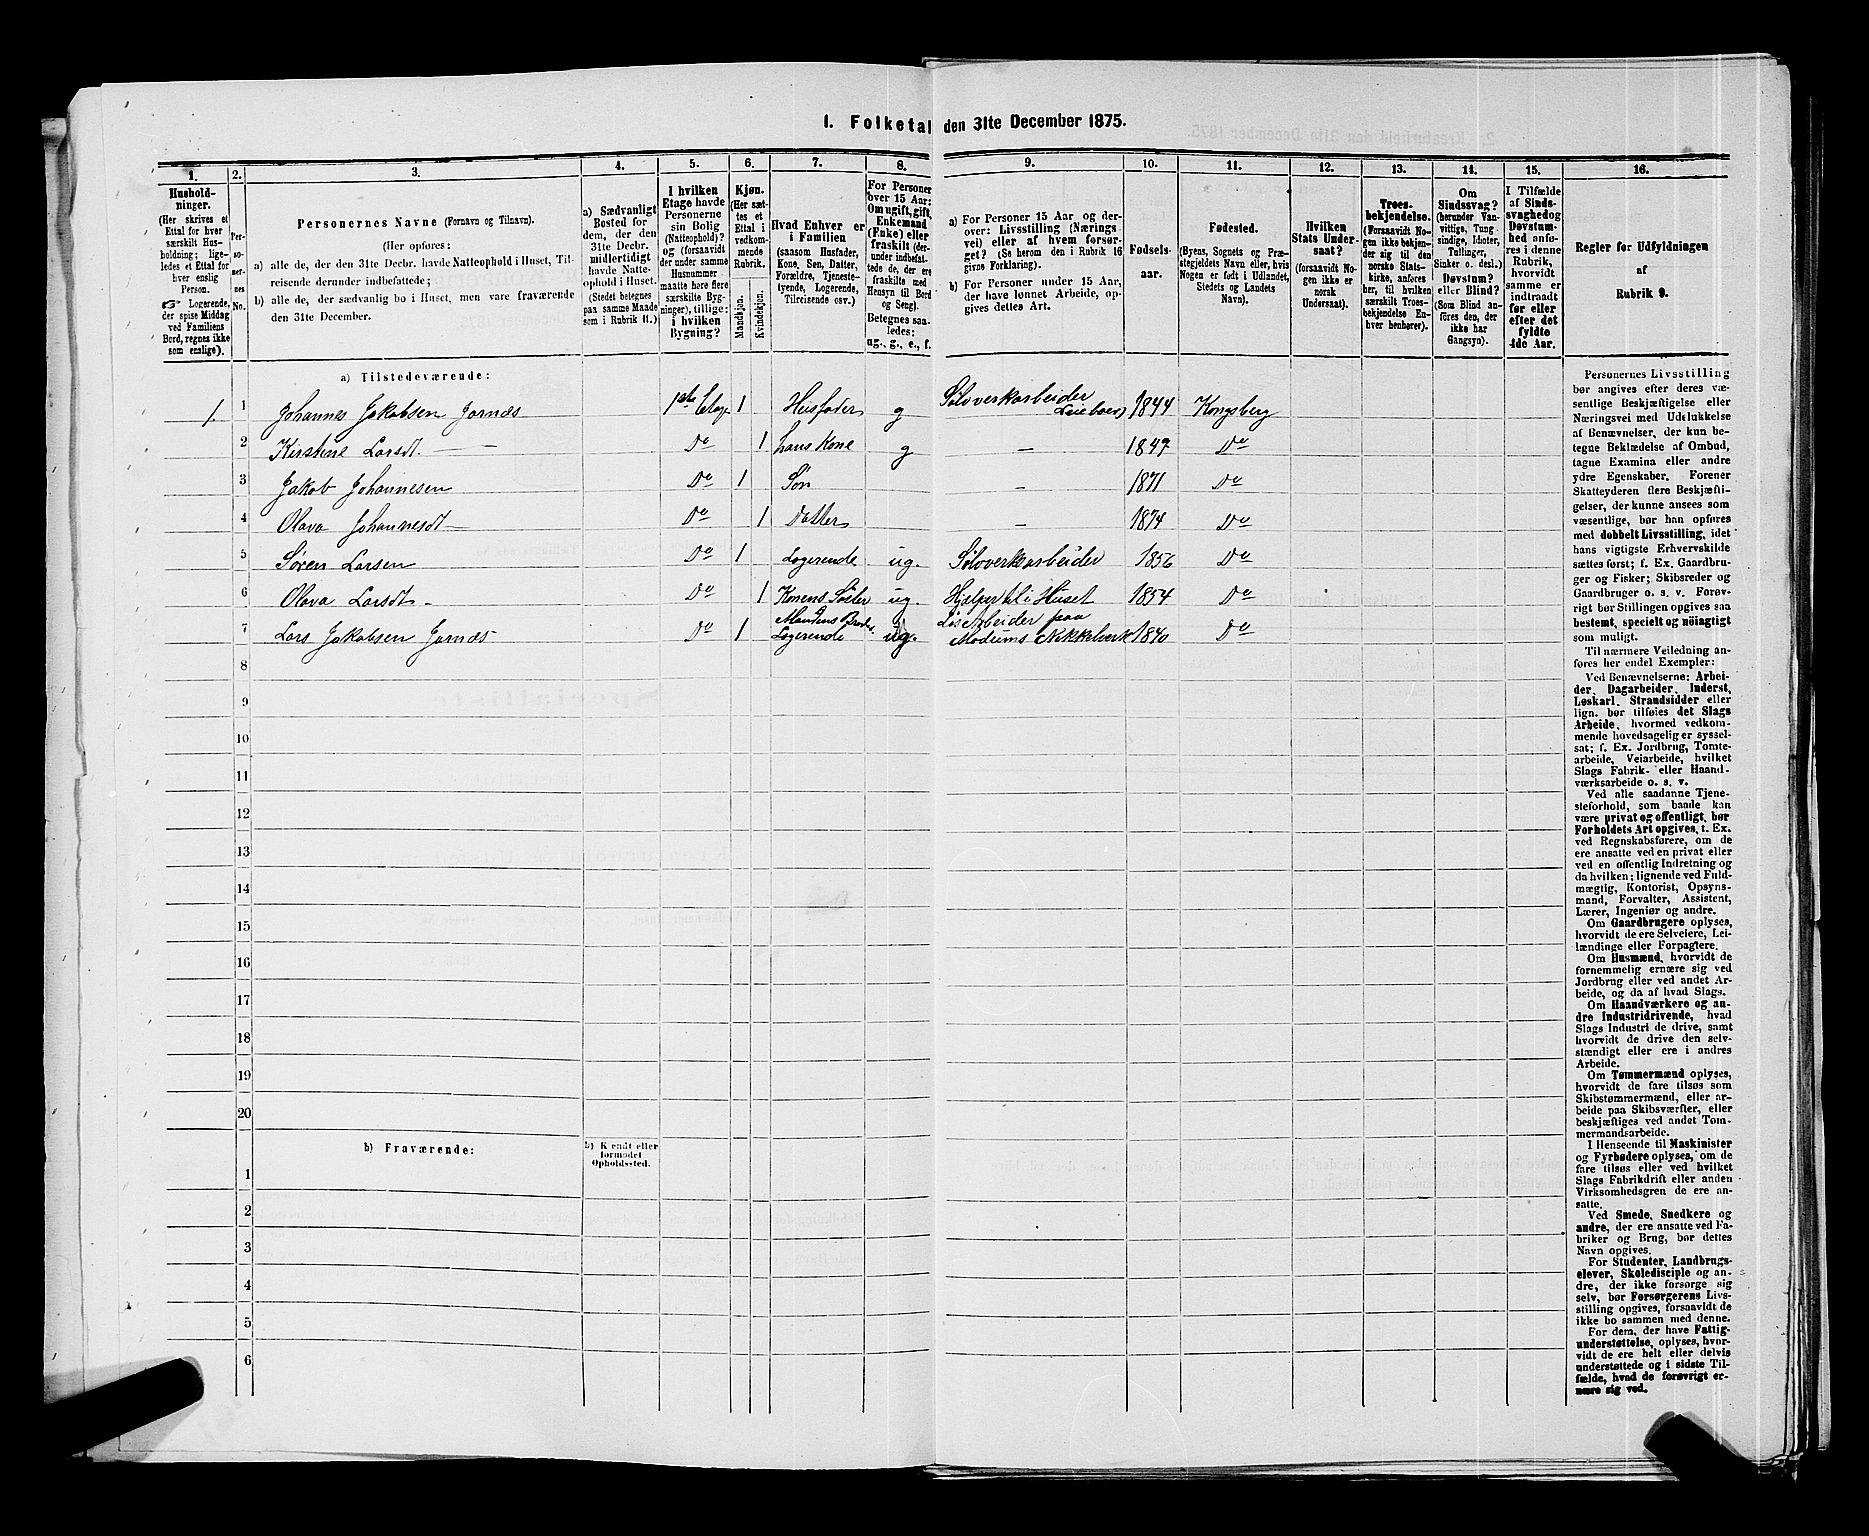 1. Folketal den 31te December 1875.
1. 2. 3. 4. 5. 6. 7. 8. 9. 10. 11. 12. 13. 14. 15. 16.
Hushold-
ninger.
(Her skrives et
Ettal for hver
særskilt Hus-
holdning; lige-
ledes et Ettal for
hver enslig
Person.
☞ Logerende,
der spise Middag
ved Familiens
Bord, regnes ikke
som enslige).
Per-
so-
ner-
nes
No.
Personernes Navne (Fornavn og Tilnavn).
(Her opføres:
a) alle de, der den 31te Decbr. havde Natteophold i Huset, Til-
reisende derunder indbefattede;
b) alle de, der sædvanlig bo i Huset, men vare fraværende
den 31te December.
a) Sædvanligt
Bosted for
dem, der den
31te Decbr.
midlertidigt
havde Natte-
ophold i Huset.
(Stedet betegnes
paa samme Maade
som i Rubrik 11.)
I hvilken
Etage havde
Personerne
sin Bolig
(Natteophold)?
og (forsaavidt
der under samme
Husnummer
maatte høre flere
særskilte Byg-
ninger), tillige:
i hvilken
Bygning?
Kjøn.
(Her sæt-
tes et
Ettal i
vedkom-
mende
Rubrik.
Mandkjøn.
Kvindekjøn.
Hvad Enhver er
i Familien
(saasom Husfader,
Kone, Søn, Datter,
Forældre, Tjeneste-
tyende, Logerende,
Tilreisende osv.)
For Personer
over 15 Aar:
Om ugift, gift,
Enkemand
(Enke) eller
fraskilt (der-
under indbefat-
tede de, der ere
fraskilte med
Hensyn til Bord
og Seng).
Betegnes saa-
ledes:
ug., g., e., f.
a) For Personer 15 Aar og der-
over: Livsstilling (Nærings-
vei) eller af hvem forsør-
get? (Se herom den i Rubrik 16
givne Forklaring).
b) For Personer under 15 Aar,
der have lønnet Arbeide, op-
gives dettes Art.
Fødsels-
aar.
Fødested.
(Byens, Sognets og Præ-
stegjeldets Navn eller, hvis
Nogen er født i Udlandet,
Stedets og Landets
Navn).
Hvilken
Stats Under-
saat?
(forsaavidt No-
gen ikke er
norsk
Undersaat).
Troes-
bekjendelse.
(Forsaavidt No-
gen ikke bekjen-
der sig til den
norske Stats-
kirke, anføres
her, til hvilken
særskilt Troes-
bekjendelse En-
hver henhører).
Om
Sindssvag?
(herunder Van-
vittige, Tung-
sindige, Idioter,
Tullinger,
Sinker o. desl.)
Døvstum?
eller Blind?
(Som Blind an-
føres den, der
ikke har
Gangsyn).
I Tilfælde
af Sinds-
svaghed og
Døvstum-
hed anfø-
res i denne
Rubrik,
hvorvidt
samme er
indtraadt
før eller
efter det
fyldte
4de Aar.
Regler for Udfyldningen
af
Rubrik 9.
a) Tilstedeværende:
1. 1 Johannes Jakobsen Jornæs 1ste Etage 1 Husfader g Sølvverksarbeider Leieboer 1844 Kongsberg
2 Kirstine Larsdt. — Do 1 hans Kone g — 1847 Do
3 Jakob Johannesen Do 1 Søn — 1871 Do
4 Olava Johannesdt — Do 1 Datter — 1874 Do
5 Søren Larsen Do 1 Logerende ug. Sølvverksarbeider 1856 Do
6 Olava Larsdt - Do 1 Konens Søster ug. Hjælper til i Huset 1854 Do
7 Lars Jakobsen Jornæs Do 1 Mandens Broder Logerende ug. Løs Arbeider paa Modums Nikkelverk 1840 Do
8
9
10
11
12
13
14
15
16
17
18
19
20
b) Fraværende:
b) Kendt eller
formodet
Opholdssted.
1
2
3
4
5
6
Personernes Livsstilling
bør angives efter deres væ-
sentlige Beskjæftigelse eller
Næringsvei med Udelukkelse
af Benævnelser, der kun be-
tegne Beklædelse af Ombud,
tagne Examina eller andre
ydre Egenskaber. Forener
Skatteyderen flere Beskjæfti-
gelser, der kunne ansees som
væsentlige, bør han opføres
med dobbelt Livsstilling, idet
hans vigtigste Erhvervskilde
sættes først; f. Ex. Gaardbru-
ger og Fisker; Skibsreder og
Gaardbruger o. s. v. Forøv-
rigt bør Stillingen opgives saa
bestemt, specielt og nöiagtigt
som muligt.
Til nærmere Veiledning an-
føres her endel Exempler:
Ved Benævnelserne: Arbei-
der, Dagarbeider, Inderst,
Løskarl, Strandsidder eller
lign. bør tilføies det Slags
Arbeide, hvormed vedkom-
mende hovedsagelig er syssel-
sat; f. Ex. Jordbrug, Tomte-
arbeide, Veiarbeide, hvilket
Slags Fabrik- eller Haand-
værksarbeide o. s. v.
Ved alle saadanne Tjene-
steforhold, som baade kan
være privat og offentligt, bør
Forholdets Art opgives, t. Ex.
ved Regnskabsførere, om de
ere ansatte ved en privat eller
ved en offentlig Indretning og
da hvilken; lignende ved Fuld-
mægtig, Kontorist, Opsyns-
mand, Forvalter, Assistent,
Lærer, Ingeniør og andre.
Om Gaardbrugere oplyses,
hvorvidt de ere Selveiere, Lei-
lændinge eller Forpagtere.
Om Husmænd, hvorvidt de
fornemmelig ernære sig ved
Jordbrug eller ved andet Ar-
beide, og da af hvad Slags.
Om Haandværkere og an-
dre Industridrivende, hvad
Slags Industri de drive, samt
hvorvidt de drive den selv-
stændigt eller ere i andres
Arbeide.
Om Tømmermænd oplyses,
hvorvidt de fare tilsøs som
Skibstømmermænd, eller ar-
beide paa Skibsværfter, eller
beskjæftiges ved andet Tøm-
mermandsarbeide.
I Henseende til Maskinister
og Fyrbødere oplyses, om de
fare tilsøs eller ved hvilket
Slags Fabrikdrift eller anden
Virksomhedsgren de ere an-
satte.
Ved Smede, Snedkere og
andre, der ere ansatte ved Fa-
briker og Brug, bør dettes
Navn opgives.
For Studenter, Landbrugs-
elever, Skoledisciple og an-
dre, der ikke forsørge sig
selv, bør Forsørgerens Livs-
stilling opgives, forsaavidt de
ikke bo sammen med denne.
For dem, der have Fattig-
understøttelse, oplyses, hvor-
vidt de ere helt eller delvis
understøttede og i sidste Til-
fælde, hvad de forøvrigt er-
nære sig ved.